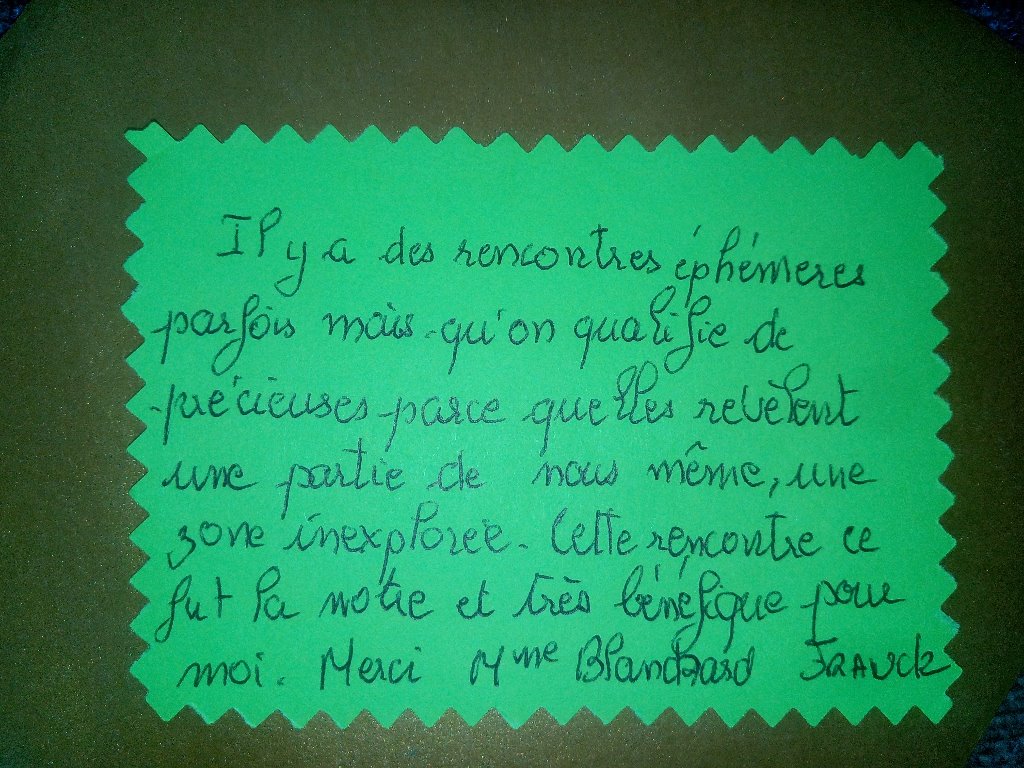 Il y a des rencontres éphémeres
parfois mais qu'on qualifie de
précieuses parce quelles revèlent
une partie de nous même, une
zone inexplorée. Cette rencontre ce
fut la notre et très bénéfique pour
moi. Merci Mme Blanchard FRANCK